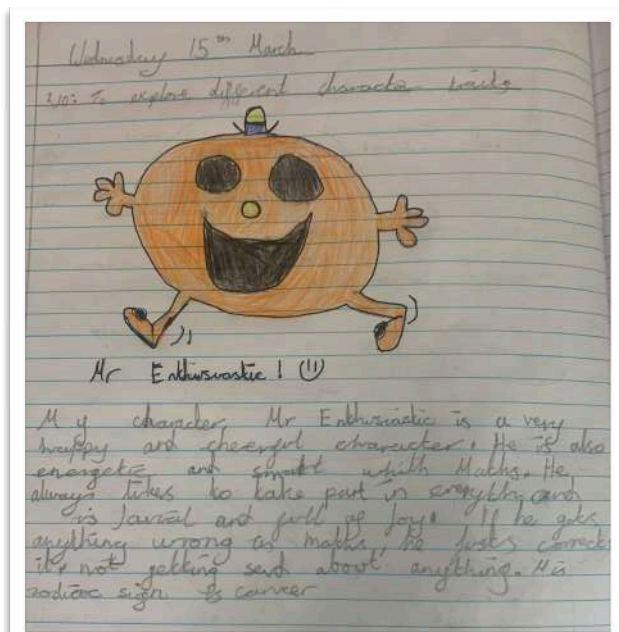 Wednesday 15th March
LO: To explore different character traits
Mr Enthusiastic! 
My character, Mr Enthusiastic is a very
happy and cheerful character. He is also
energetic and smart whith Maths. He
always likes to take part in everything and
is Jovial and full of Joy. If he gets
anything wrong in maths, he Justs corrects
it, not getting sad about anything. His
zodiac sign is cancer